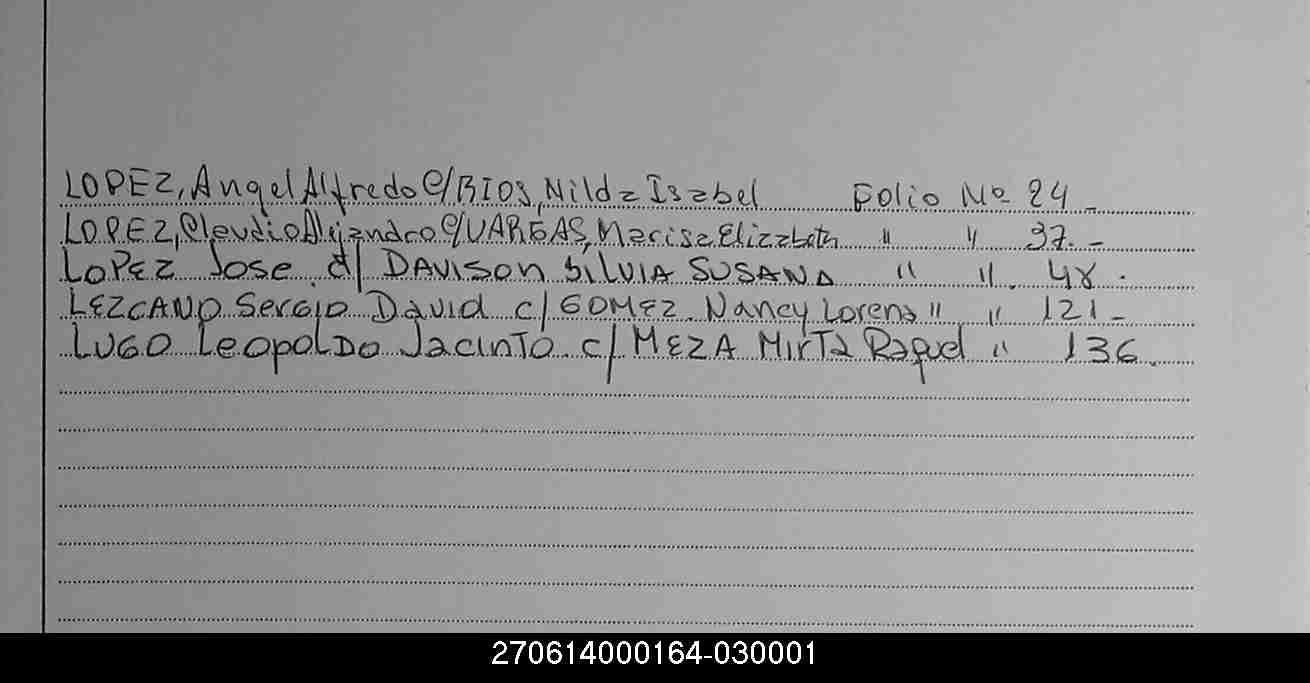 LOPEZ, Angel Alfredo C/ RIOS, Nilda Isabel Folio Nº 24 -
LOPEZ, Claudio Alejandro C/ VARGAS, Marisa Elizabeth " " 37. -
LOPEZ Jose d/ DAVISON SILVIA SUSANA " " . 48 .
LEZCANO Sergio David c/ GOMEZ Nancy Lorena " " 121 -
LUGO Leopoldo Jacinto c/ MEZA MirTa Raquel " 136.
270614000164-030001